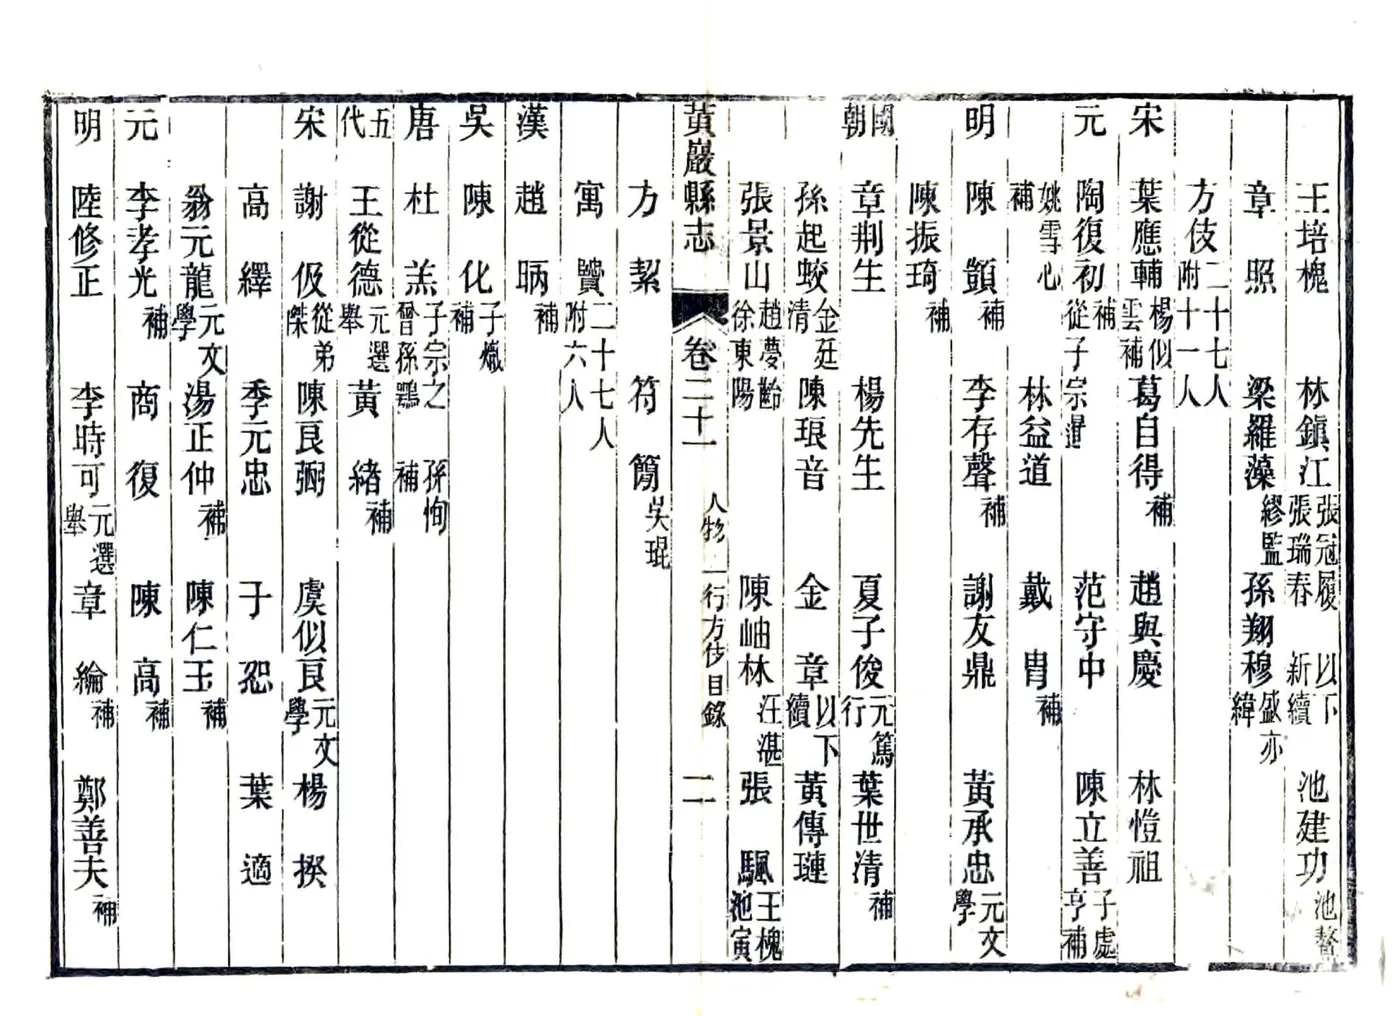 王培槐 林鎮江 張冠履 張瑞春 以下新續 池建功 池鼇
章照 梁羅藻 繆監 孫翔穆 盛亦緯
方伎 二十七人 附十一人
宋 葉應輔 楊似雲補 葛自得 補 趙與慶 林愷祖
元 陶復初 補 從子宗 范守中 陳立善 子處亨補
姚雪心 補 林益道 戴胄 補
明 陳顗 補 李存聲 補 謝友鼎 黃承忠 元文學
陳振琦 補
國朝 章荆生 楊先生 夏子俊 元篤行 葉世清 補
孫起蛟 金廷清 陳琅音 金章 以下續 黃傳璉
張景山 趙夢齡 徐東陽 陳岫林 汪湛 張颿 王槐 池寅
黃巖縣志 卷二十一 人物 一行方伎目錄 二
方絜 符簡 吳琨
寓賢 二十七人 附六人
漢 趙昞 補
吳 陳化 子熾 補
唐 杜羔 子宗之 曾孫鶚 孫恂 補
五代 王從德 元選舉 黃緒 補
宋 謝伋 從弟傑 陳良弼 虞似良 元文學 楊揆
高繹 季元忠 于恕 葉適
翁元龍 元文學 湯正仲 補 陳仁玉 補
元 李孝光 補 商復 陳高 補
明 陸修正 李時可 元選舉 章綸 補 鄭善夫 補